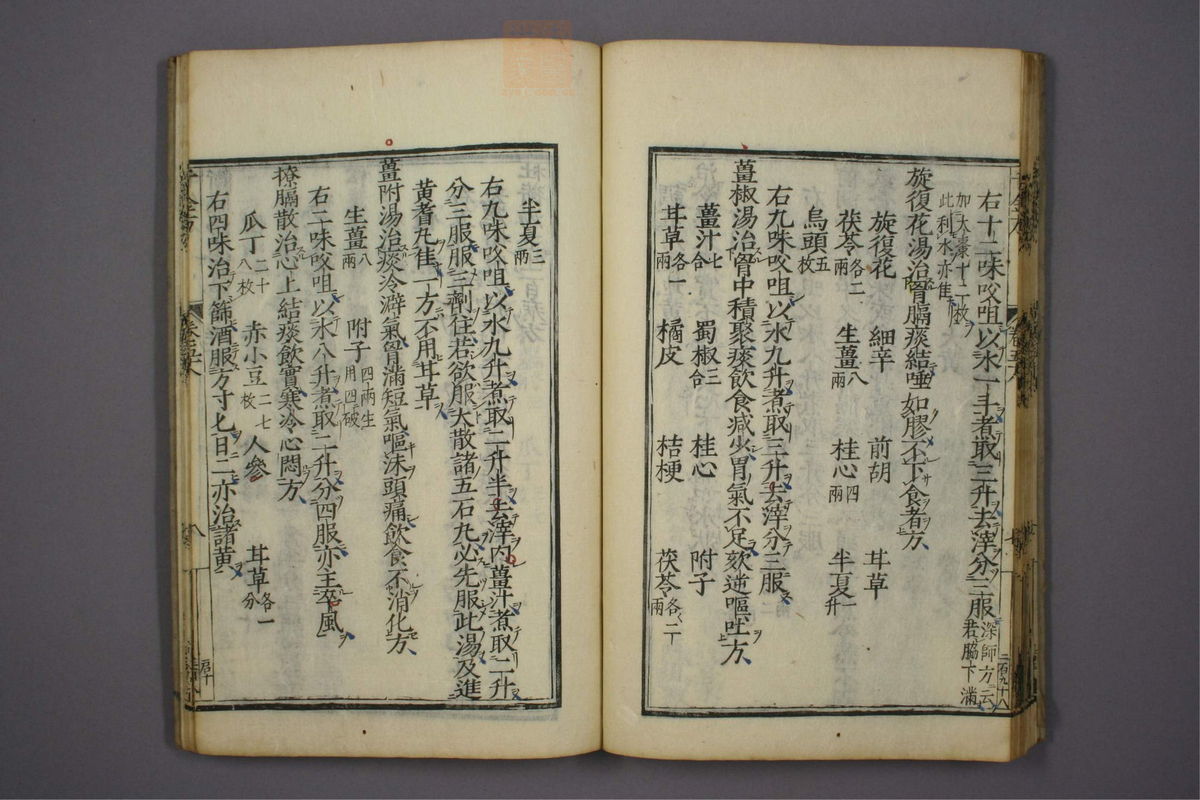 右十二味㕮咀以水一斗煮取三升去滓分三服深師方云若脇下滿
加大棗十二枚此利水亦佳
旋復花湯治胷膈痰結唾如膠不下食者方
旋復花 細辛 前胡 甘草
茯苓各二兩 生薑八兩 桂心四兩 半夏一升
烏頭五枚
右九味㕮咀以水九升煮取三升去滓分三服
薑椒湯治胷中積聚痰飲飲食減少胃氣不足欬逆嘔吐方
薑汁七合 蜀椒三合 桂心 附子
甘草各一兩 橘皮 桔梗 茯苓各二兩
半夏三兩
右九味㕮咀以水九升煮取二升半去滓内薑汁煮取二升
分三服服三劑住若欲服大散諸五石丸必先服此湯及進
黄耆丸佳一方不用甘草
薑附湯治痰冷澼氣胷滿短氣嘔沫頭痛飲食不消化方
生薑八兩 附子四兩生用四破
右二味㕮咀以水八升煮取二升分四服亦主卒風
撩膈散治心上結痰飲實寒冷心悶方
瓜丁二十八枚 赤小豆二七枚 人參 甘草各一分
右四味治下篩酒服方寸匕日二亦治諸黄